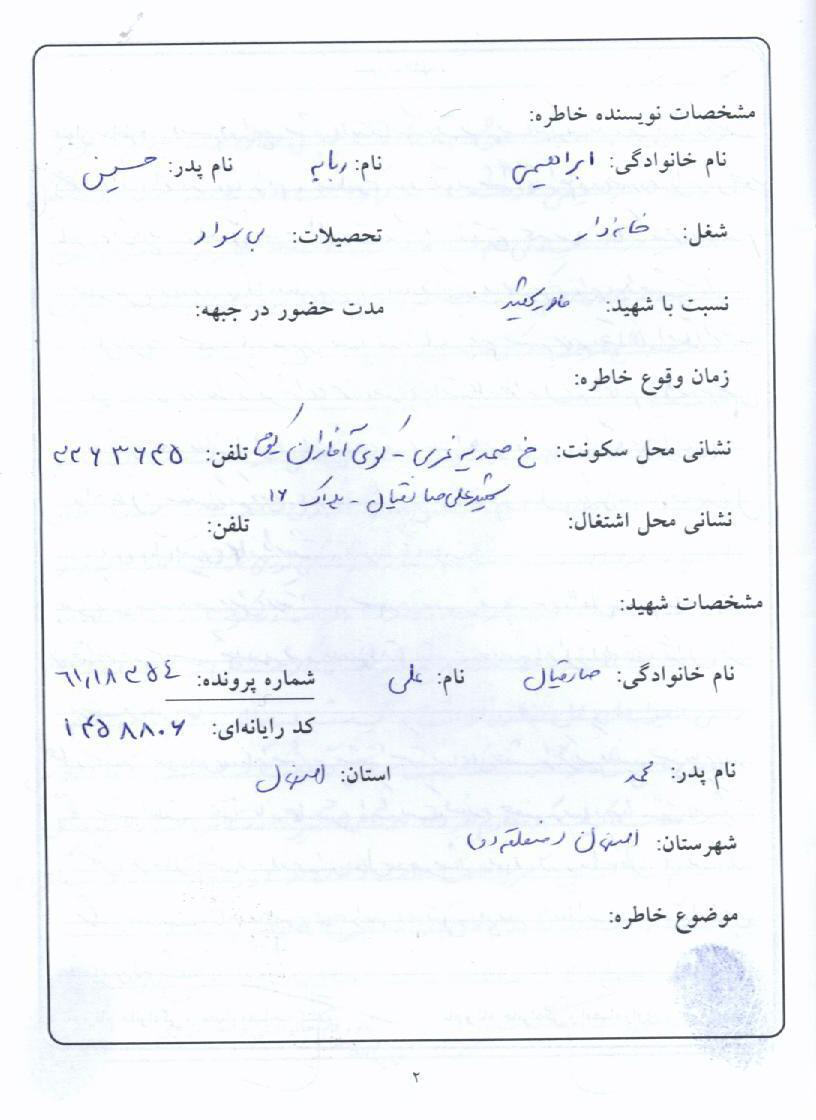 مشخصات نویسنده خاطره:
نام خانوادگی: ابراهیمی نام: ربابه نام پدر: حسین
شغل: خانه دار تحصیلات: بی سواد
نسبت با شهید: مادر شهید مدت حضور در جبهه:
زمان وقوع خاطره:
نشانی محل سکونت: خ صمدیه غربی - کوی آقاران کوچه تلفن: ۲۲۶۳۶۴۵
شهید علی صادقیان - پلاک ۱۶
نشانی محل اشتغال: تلفن:
مشخصات شهید:
نام خانوادگی: صادقیان نام: علی شماره پرونده: ۶۱,۱۸۳۵۴
کد رایانه‌ای: ۱۴۵۸۸۰۶
نام پدر: محمد استان: اصفهان
شهرستان: اصفهان منطقه دو
موضوع خاطره:
۲